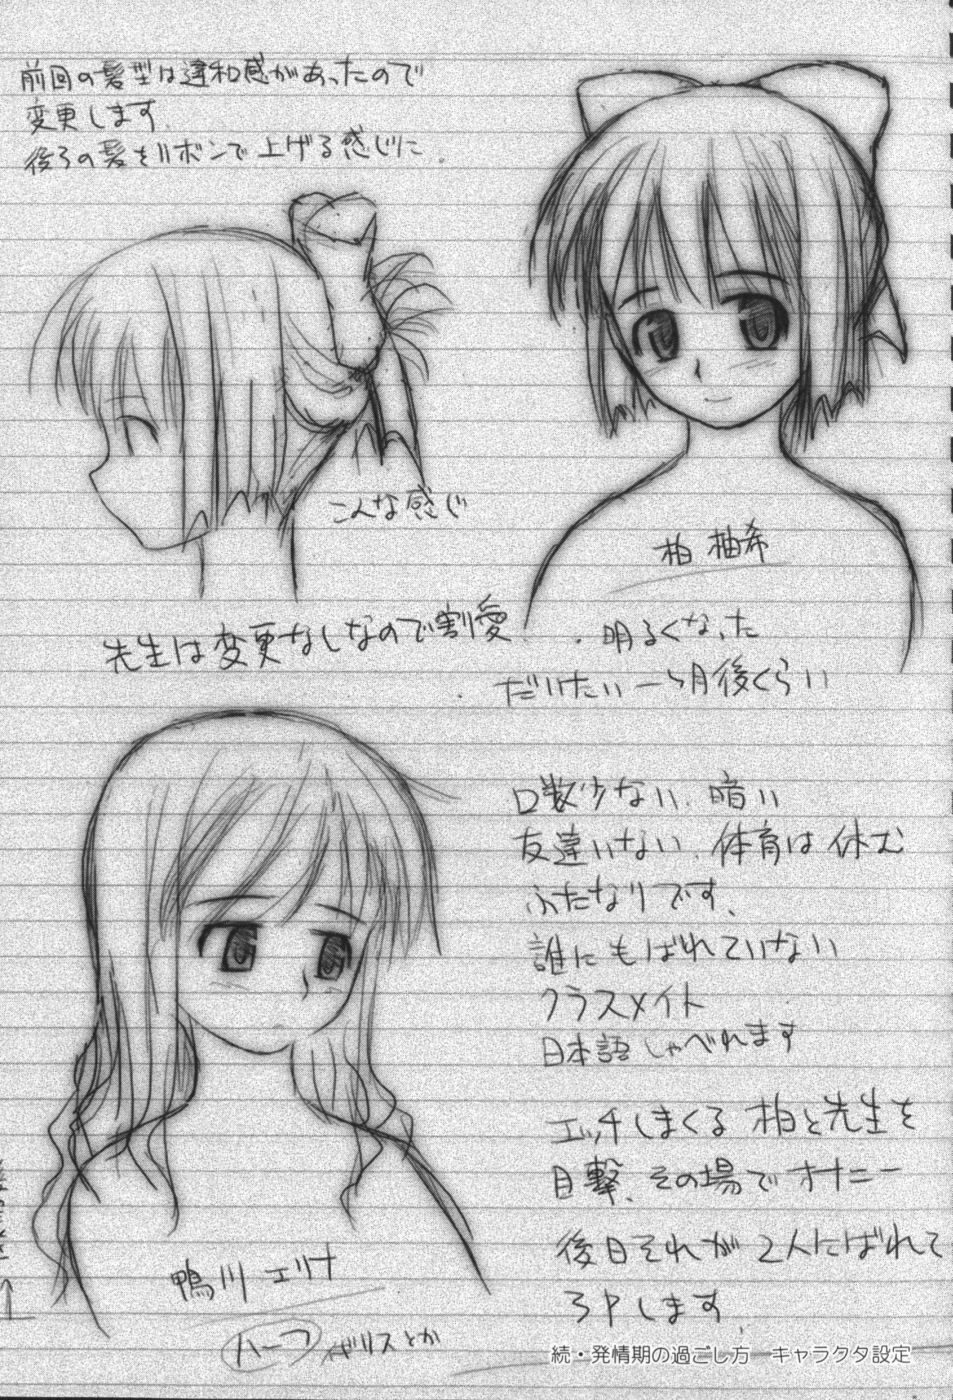 前回の髪型は違和感があったので
変更します。
後ろの髪をリボンで上げる感じに。
こんな感じ
柏 柚希
先生は変更なしなので割愛
・明るくなった
・だいたい一ヶ月後くらい
口数少ない、暗い
友達いない、体育は休む
ふたなりです、
誰にもばれていない
クラスメイト
日本語しゃべれます
エッチしまくる柏と先生を
目撃、その場でオナニー
後日それが2人にばれて
3Pします、
鴨川エリナ
ハーフ イギリスとか
続・発情期の過ごし方 キャラクタ設定